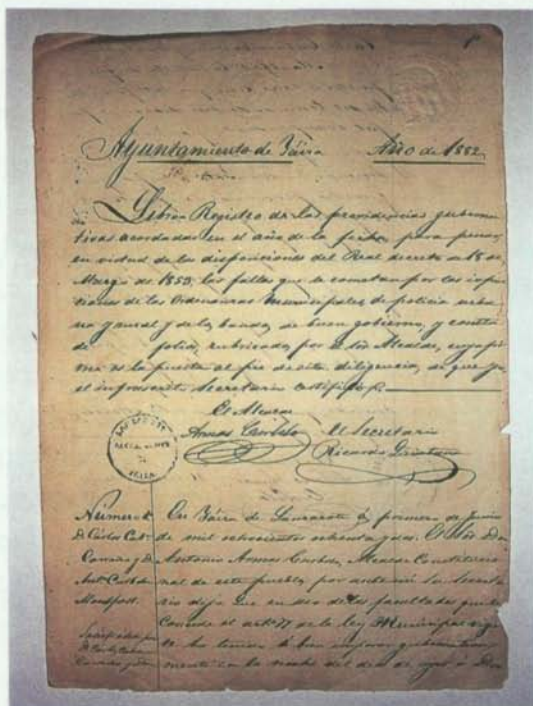 Ayuntamiento de Yáiza Año de 1882
Libro Registro de las providencias guberna-
tivas acordadas en el año de la fecha para penar
en virtud de las disposiciones del Real decreto de 18 de
Mayo de 1853, las faltas que se cometan por las infrac-
ciones de las Ordenanzas municipales de policia urba-
na y rural y de los bandos de buen gobierno, y consta
de folios, rubricados por el Sor Alcalde, cuya fir-
ma es la puesta al pie de esta diligencia, de que yo
el infrascrito Secretario certifico.
El Alcalde
Armas Curbelo El Secretario
Ricardo
YAIZA
Número
D. Cárlos
y D.
Anto
En Yáiza de Lanzarote á primero de Junio
de mil ochocientos ochenta y dos. El Sor Don
Antonio Armas Curbelo, Alcalde Constitucio-
nal de este pueblo, por ante mi su Secreta-
rio dijo: que en uso de las facultades que le
Concede el artº 77 de la ley Municipal vigen-
te ha tenido á bien imponer gubernativa-
mente en la noche del dia de ayer á Don